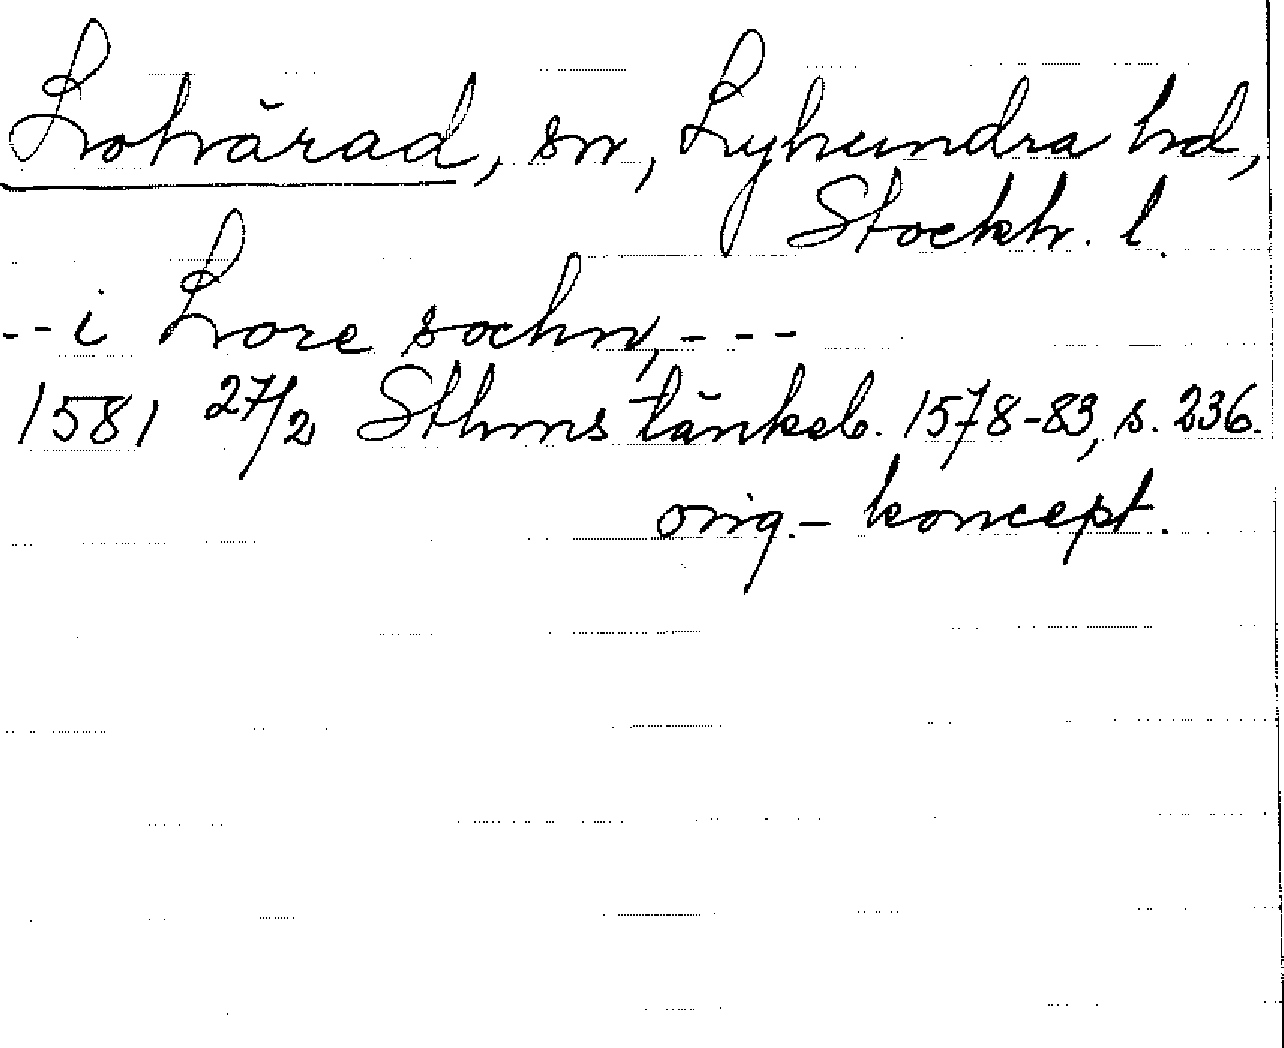 Lohärad, sn, Lyhundra hd,
Stockh. l.
-- i Lore sochn, - - -
1581 27/2 Sthms tänkeb. 1578-83, s. 236.
orig.- koncept.